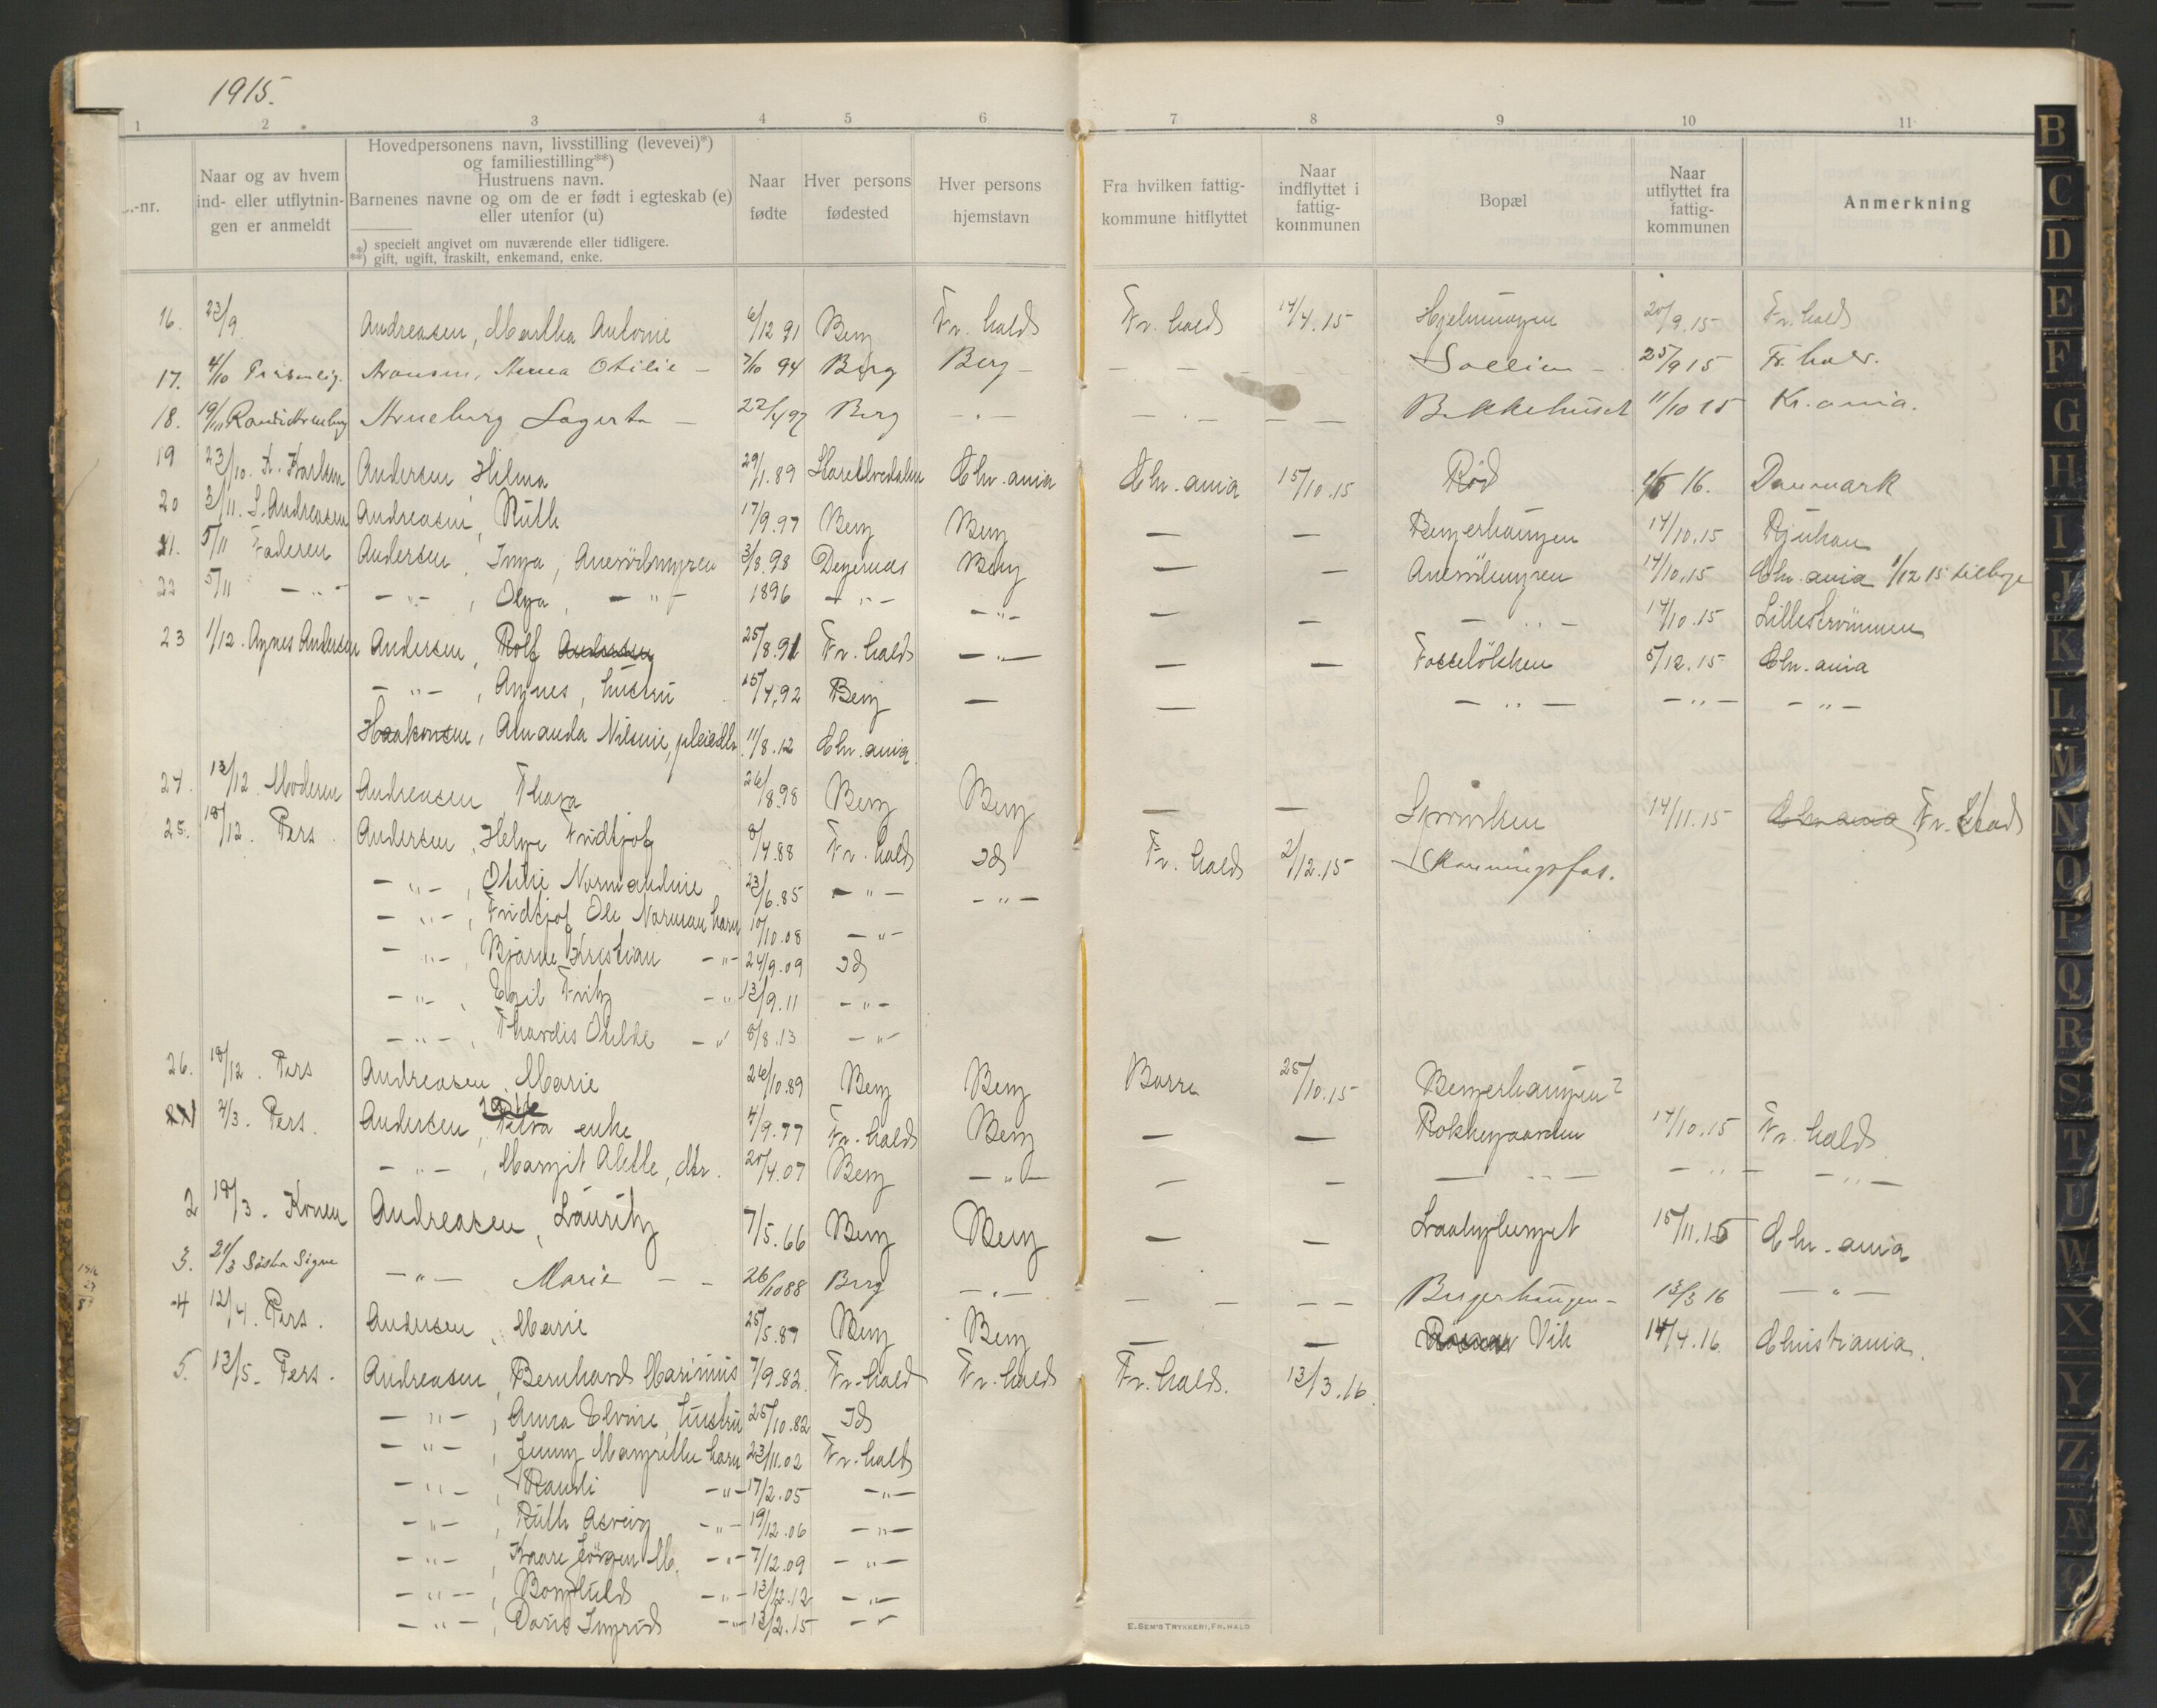 1915.
1 2 3 4 5 6 7 8 9 10 11
-nr.
Naar og av hvem ind- eller utflytnin- gen er anmeldt
Hovedpersonens navn, livsstilling (levevei)*) og familiestilling**) Hustruens navn. Barnenes navne og om de er født i egteskab (e) eller utenfor (u)
*) specielt angivet om nuværende eller tidligere.
**) gift, ugift, fraskilt, enkemand, enke.
Naar fødte
Hver persons fødested
Hver persons hjemstavn
Fra hvilken fattig- kommune hitflyttet
Naar indflyttet i fattig- kommunen
Bopæl
Naar utflyttet fra fattig- kommunen
Anmerkning
16. 23/9 Andreasen, Martha Antonie 6/12 91 Berg Fr. hald Fr. hald 14/4.15 20/9.15 Fr. hald
17. 4/10 Aronsen, Anna Otilie - 7/10 94 Berg Berg - Sollien - 25/9 15 Fr. hald.
18. 19/10 Arneberg Lagerta - 22/4 97 Berg - " - Bækkehuset 11/10 15 Kr. ania.
19 23/10. K. Karlsen Andersen Hilma 29/1.89 Chr. ania Chr. ania 15/10.15 Rød 16. Danmark
20 3/11. L. Andreasen Andreasen, Ruth 17/9.97 Berg Berg — — Bergerhaugen 14/10.15 Rjukan
21. 5/11 Faderen Andersen, Inga, 3/8.98 Berg — — 14/10.15 Chr. ania 1/12 15 tilbage
22 5/11 - " - - " -, Olga, - " - 1896 - " - - " - — — - " - 14/10.15 Lillestrømmen
23 1/12. Agnes Andersen Andersen, Rolf 25/8.91 Fr. hald - " - — — Fosseløkken 5/12.15 Chr. ania
- " -, Agnes, hustru 15/4.92 Berg — — - " - - " - - " -
Haakonsen, Amanda Nilsine, pleiedtr. 11/8.12 Chr. ania
24. 13/12. Moderen Andreasen Thora 26/8.98 Berg Berg — — 14/11.15 Chr. ania Fr. Stad
25. 18/12. Pers. Andersen, Helge Fridtjof 8/4.88 Fr. hald Id Fr. hald 2/12.15 Skonningsfos.
- " -, Otilie Normandine 23/6.85 - " - - " -
- " -, Fridtjof Ole Norman barn 10/10.08 - " -
- " -, Bjarne Kristian - " - 24/9.09 Id
- " -, Egil Fritz - " - 13/9.11 - " -
- " -, Thordis Otilde - " - 8/8.13 - " -
26. 18/12. Pers Andreasen, Marie 26/10.89 Berg Berg Borre 25/10.15 Bergerhaugen?
2/3. Pers. Andersen, Petra enke 4/9.77 Fr. hald Berg — — Rokkegaarden 14/10.15 Fr. hald.
- " -, Margit Alette, dtr. 20/4.07 Berg - " - — — - " - - " - - " -
2 18/3. Konen Andreasen, Lauritz 7/5.66 Berg Berg — — 15/11.15 Chr. ania
3. 21/3 Søster Signe - " - Marie - - 26/10 88 Berg - " - — — Bergerhaugen - 13/3 16 - " -
4 12/4. Pers. Andersen, Marie 25/5.87 Berg Berg — — Vik 14/4.16. Christiania.
5. 13/5. Pers. Andreasen, Bernhard Marinius 7/9.82. Fr. hald Fr. hald Fr. hald. 13/3.16.
- " -, Anna Elvine, hustru 25/10.82 Id
- " -, Jenny Margrethe barn 23/11.02 Fr. hald
- " -, Randi - " - 17/2.05 - " -
- " -, Ruth Asveig - " - 19/12.06 - " -
- " -, Kaare Jörgen M. - " - 7/12.09 - " -
- " -, Borghild - " - 13/12.12 - " -
- " -, Doris Ingrid - " - 13/2.15 - " -
E. SEM'S TRYKKERI, FR.HALD
B
C
D
E
F
G
H
I
J
K
L
M
N
O
P
Q
R
S
T
U
W
X
Y
Z
Æ
Ø